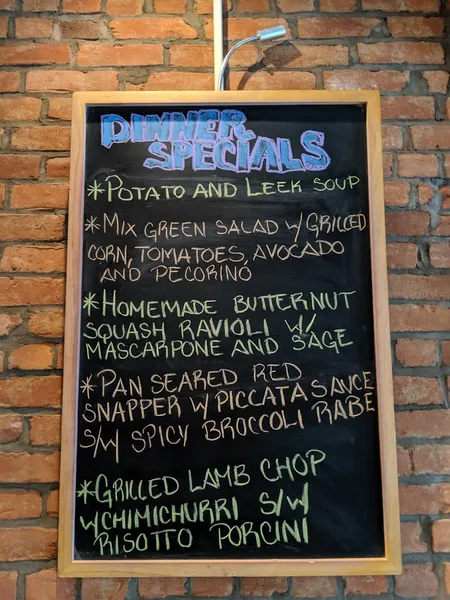 DINNER
SPECIALS
*POTATO AND LEEK SOUP
*MIX GREEN SALAD W/ GRILLED
CORN, TOMATOES, AVOCADO
AND PECORINO
*HOMEMADE BUTTERNUT
SQUASH RAVIOLI W/
MASCARPONE AND SAGE
*PAN SEARED RED
SNAPPER W/ PICCATA SAUCE
S/W SPICY BROCCOLI RABE
*GRILLED LAMB CHOP
W/CHIMICHURRI S/W
RISOTTO PORCINI